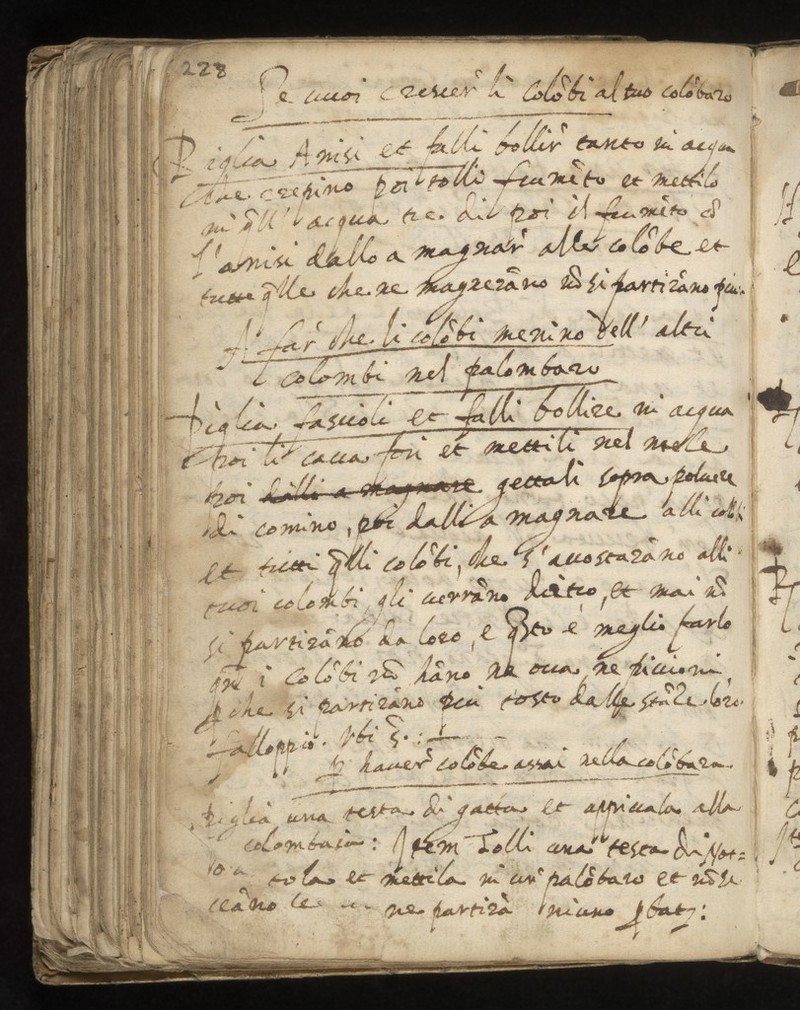 228
Se vuoi crescer li colõbi al tuo colõbaro
Piglia Anisi et falli bollir tanto in acqua
che crepino poi tolli frumẽto et mettilo
in q̃ll' acqua tre dì poi il frumẽto cõ
l'anisi dallo a magnar alle colõbe et
tutte q̃lle che ne magnerãno nõ si partirãno piu.
A far che li colõbi menino dell' altri
colombi nel palombaro
Piglia fascioli et falli bollire in acqua
poi li cava fori et mettili nel mele
poi dalli a magnare gettali sopra polvere
di comino, poi dalli a magnare alli colõbi
et tutti q̃lli colõbi, che s'acostarãno alli
tuoi colombi, gli verrãno dietro, et mai nõ
si partirãno da loro, e q̃sto é meglio farlo
qñ i colõbi nõ hãno ne ova, ne piccioni
ꝑche si partirãno piu tosto dalle stãze loro
falloppio. Vbi s̃.:
ꝑ haver colõbe assai nella colõbara
Piglia una testa di gatta et appicala alla
colombaia: Item Tolli una testa di Not=
tola et mettila in un palõbaro et nõ
ne partirà niuno ꝓbat: